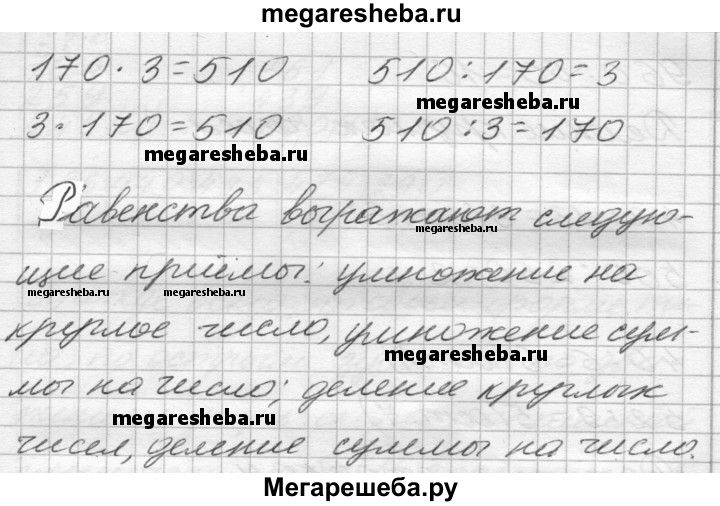 megaresheba.ru
170 · 3 = 510 510 : 170 = 3
megaresheba.ru
3 · 170 = 510 510 : 3 = 170
megaresheba.ru
Равенства выражают следую-
megaresheba.ru
щие приёмы: умножение на
megaresheba.ru megaresheba.ru
круглое число, умножение сум-
megaresheba.ru
мы на число; деление круглых
megaresheba.ru
чисел, деление суммы на число.
Мегарешеба.ру